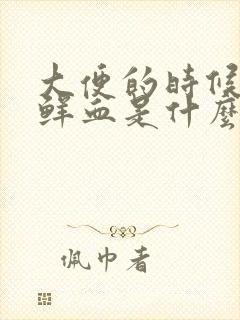 大便的時候
鮮血是什麼
佩巾者